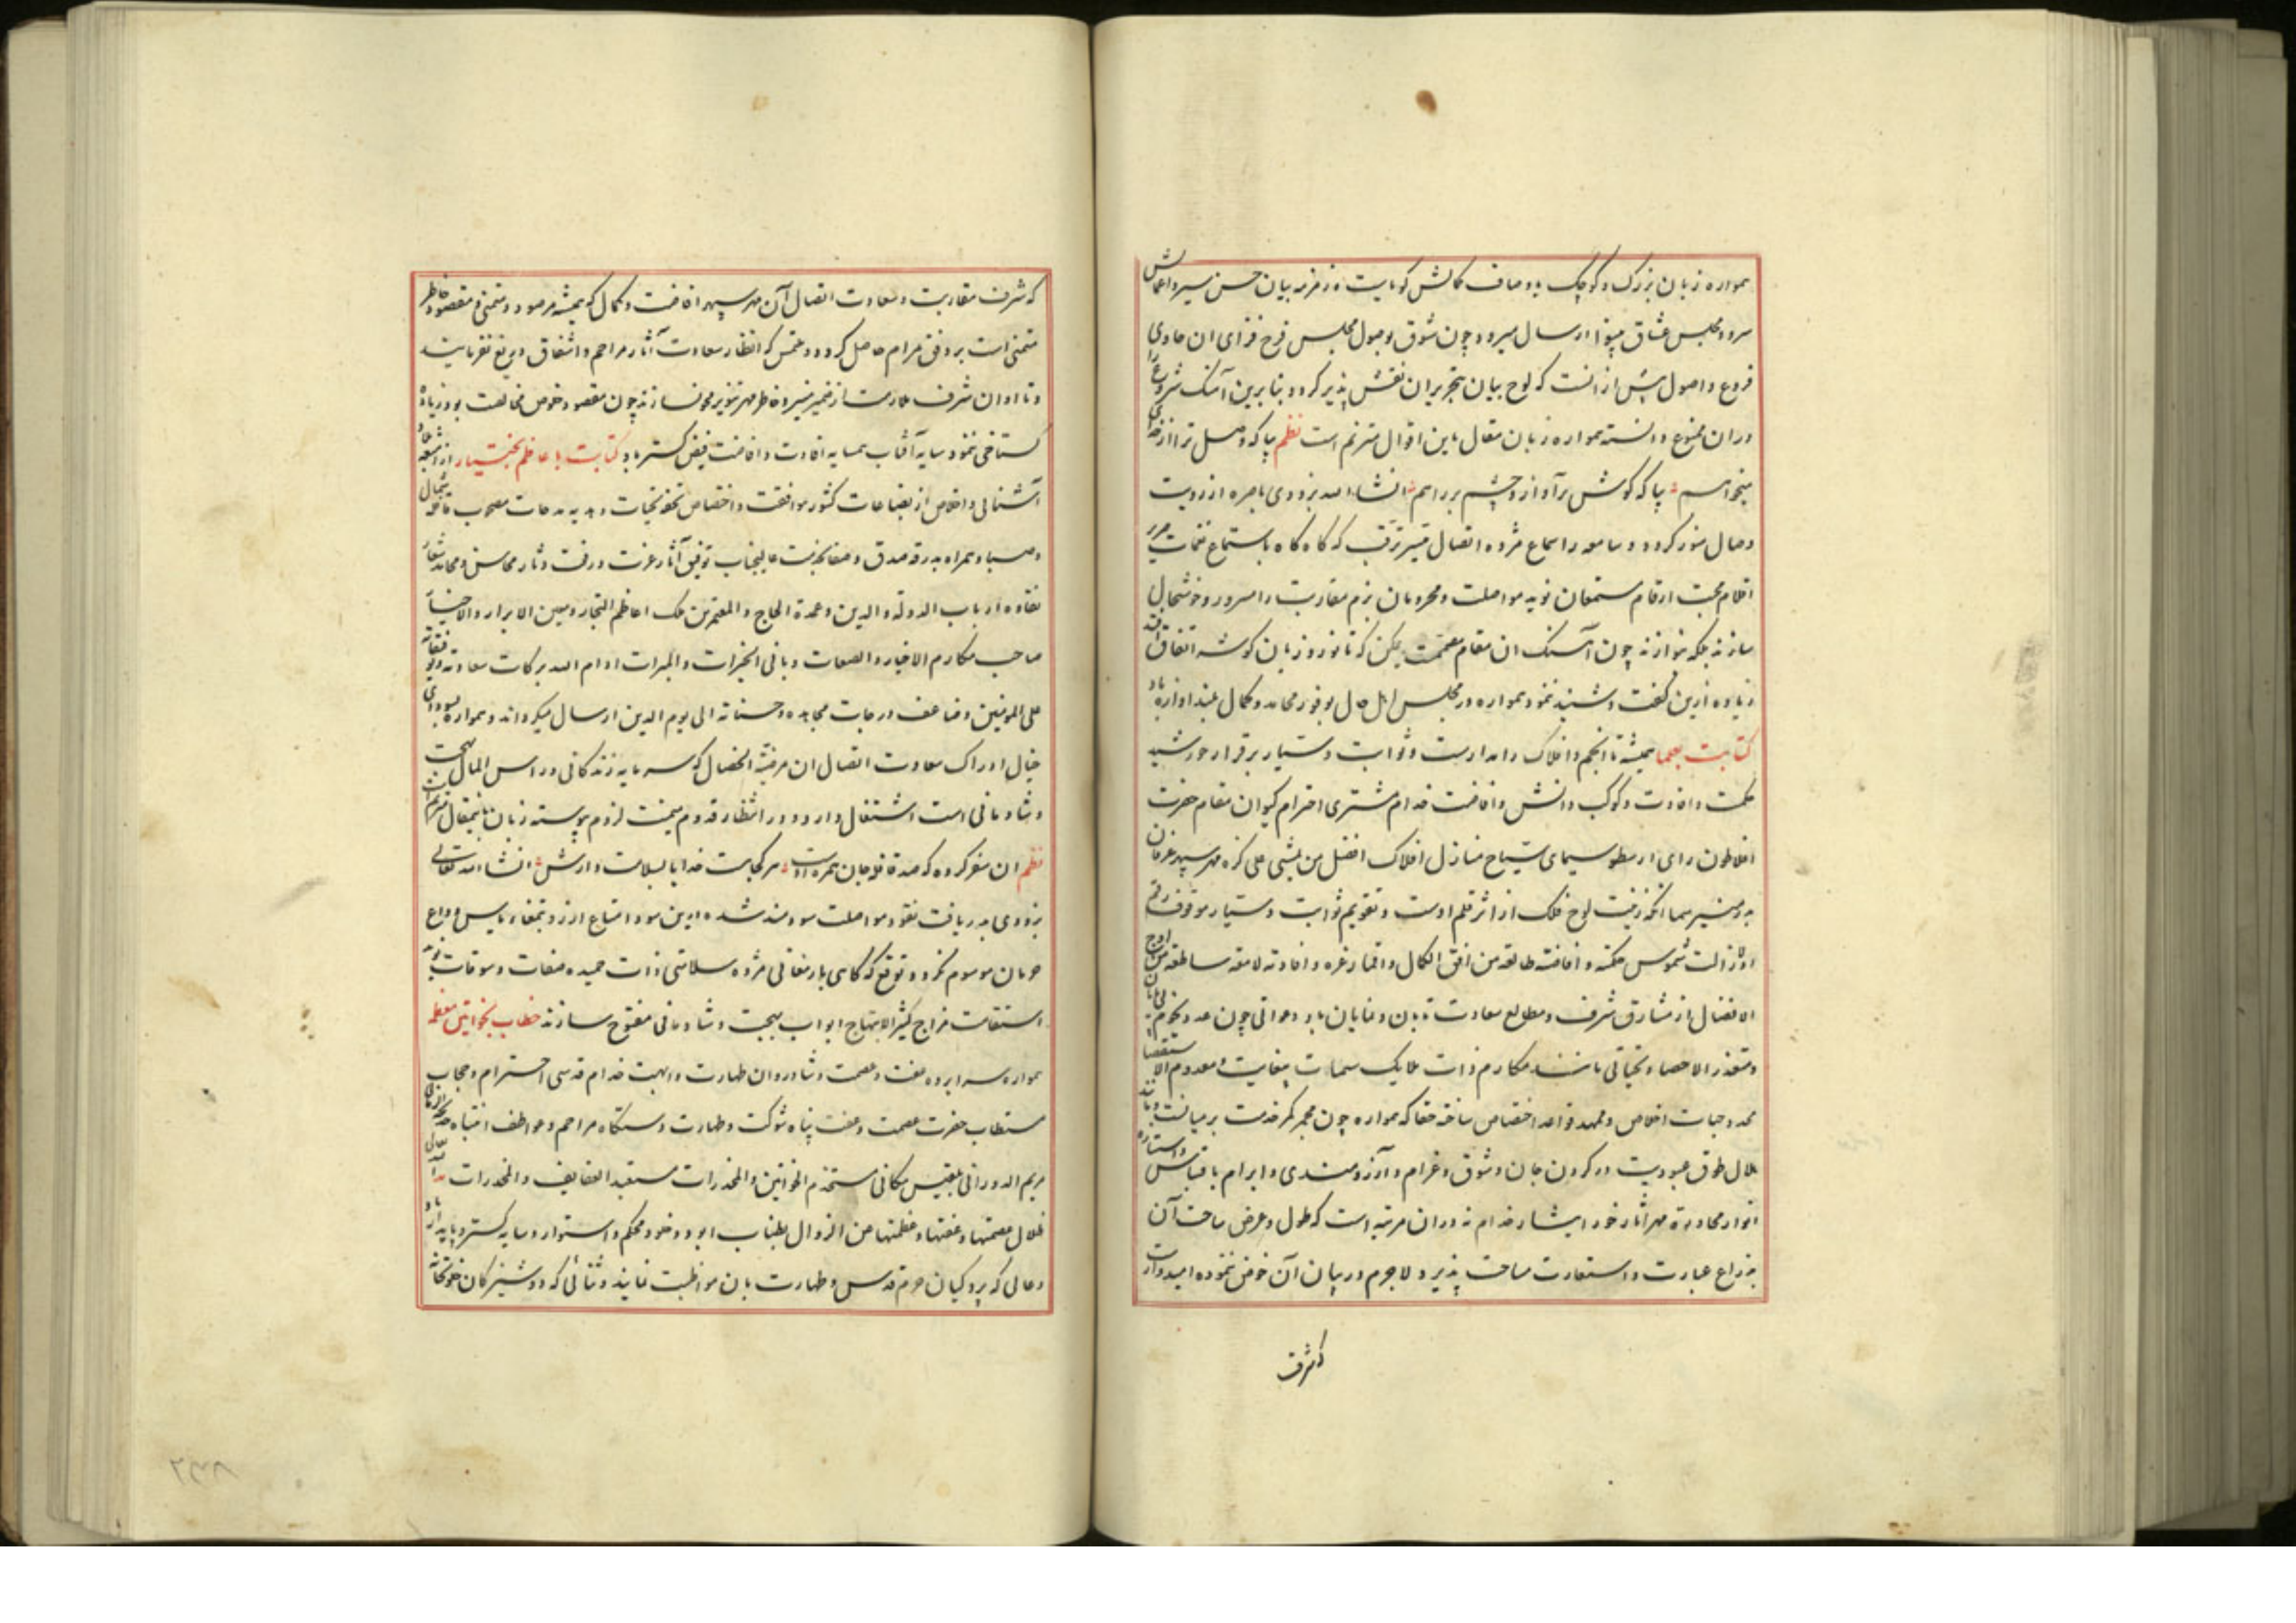 همواره زبان بزرک و کوچک باوصاف کمالش کویاست و زمزمه بیان حسن سیر و اعمالش
سرود مجلس عشاق بینوا ارسال میرود چون شوق بوصول مجلس فرح فزای ان حاوی
فروع و اصول بیش از انست که لوح بیان بتحریر ان نقش پذیر کردد بنابرین آهنک شروع را
دران ممنوع دانسته همواره زبان مقال باین اقوال مترنم است نظم بیا که وصل ترا از خدای
میخواهم بیا که کوش بر آواز و چشم بر راهم انشاء الله بزودی باصره از رویت
وصال منور کردد و سامعه را سماع مژده اتصال میسر ترقب که کاه کاه باستماع نغمات صریر
اقلام محبت ارقام مستمعان نوید مواصلت و محرومان بزم مقاربت را مسرور و خوشحال
سازند بلکه بنوازند چون آهنک ان مقام مصمّمست یمکن که تا نوروز بان کوشه اتفاق افتد
زیاده ازین کفت و شنید ننمود همواره در مجلس اهل حال بوفور محامد و کمال بلند اوازه باد
کتابت بعما همیشه تا انجم و افلاک را مدارست و ثوابت و سیار برقرار خورشید
حکمت و افادت و کوکب دانش و افاضت خدام مشتری احترام کیوان مقام حضرت
افلاطون رای ارسطو سیمای سیاح منازل افلاک افضل من یمشی علی کره مهر سپهر عرفان
بدر منیر سما انکه زینت لوح فلک از اثر قلم اوست و تقویم ثوابت و سیار موقوف رقم
او لازالت شموس حکمته و افاضته طالعة من افق الکمال و اقمار غره و افادته لامعة ساطعة من اوج
الافضال از مشارق شرف و مطالع سعادت تابان و نمایان باد دعواتی چون عدد نجوم بی پایان
و متعذر الاحصا و تحیاتی مانند مکارم ذات ملایک سمات بیغایت و معدوم الاستقصا
ممد و حیات اخلاص و ممهد قواعد اختصاص ساخته حقا که همواره چون مجمر کمر خدمت بر میانست و مانند
هلال طوق عبودیت در کردن جان و شوق و غرام و آرزومندی و ابرام باقتباس و استناره
انوار محاوره مهر اثار خورایشار خدام نه دران مرتبه است که طول و عرض ساحت آن
بذراع عبارت و استعارت مساحت پذیرد لاجرم در بیان آن خوض ننموده امیدوارست
که شرف
که شرف مقاربت و سعادت اتصال آن مهر سپهر افاضت و کمال که همیشه مرصود و متمنی و مقصود خاطر
متمنی است بر وفق مرام حاصل کردد و ملتمس که انظار سعادت آثار مراحم و اشفاق دریغ نفرمایند
و تا اوان شرف ملازمت از ضمیر منیر و خاطر مهر تنویر محو نسازند چون مقصود خوض مخالفت بود زیاده
کستاخی ننمود سایه آفتاب همسایه افادت و افاضت فیض کستر باد کتابت باعاظم بختیار
آشنائی و اخلاص از بضاعات کشور موافقت و اختصاص تحف تحیات و هدیه مدحات مصحوب قافله شمال
و صبا و همراه بدرقه صدق و صفا بخدمت عالیجناب توفیق آثار عزت و رفعت دثار محاسن و محامد شعار
نقاوه ارباب الدولة و الدین و عمدة الحاج و المعتمرین ملک اعاظم التجار و معین الابرار و الاخیار
صاحب مکارم الاخیار و الصفات و بانی الخیرات و المبرات ادام الله برکات سعادته و توفیقاته
علی المومنین و ضاعف درجات مجاهده و حسناته الی یوم الدین ارسال میکرداند و همواره بسودای
خیال ادراک سعادت اتصال ان مرضیة الخصال که سرمایه زندکانی و راس المال بهجت
و شادمانی است اشتغال دارد و در انتظار قدوم میمنت لزوم پیوسته زبان باینمقال مترنم است
نظم ان سفر کرده که صد قافله جان همره اوست هر کجا هست خدایا بسلامت دارش انشاء الله تعالی
بزودی بدریافت نقود مواصلت سودمند شده ازین سود امتاع ارزو بتمغاء یاس و داغ
حرمان موسوم نکردد توقع که کاهی بارمغانی مژده سلامتی ذات حمیده صفات و سوقات نوید
استقامت مزاج کثیر الابتهاج ابواب بهجت و شادمانی مفتوح سازند خطاب بخواتین معظمه
همواره سراپرده عفت و عصمت و شادروان طهارت و ابهت خدام قدسی احترام و حجاب
مستطاب حضرت عصمت و عفت پناه شوکت و طهارت دستکاه مراحم و عواطف انتباه خدیجة الزمانی
مریم الدورانی بلقیس مکانی مستخدم الخواتین و المخدرات مستعبد العفایف و المخدرات مد الله تعالی
ظلال عصمتها و عفتها و عظمتها من الزوال بطناب ابود و خلود محکم و استوار و سایه کستر و پایدار باد
دعائی که پردکیان حرم قدس و طهارت بان مواظبت نمایند و ثنائی که دوشیزکان